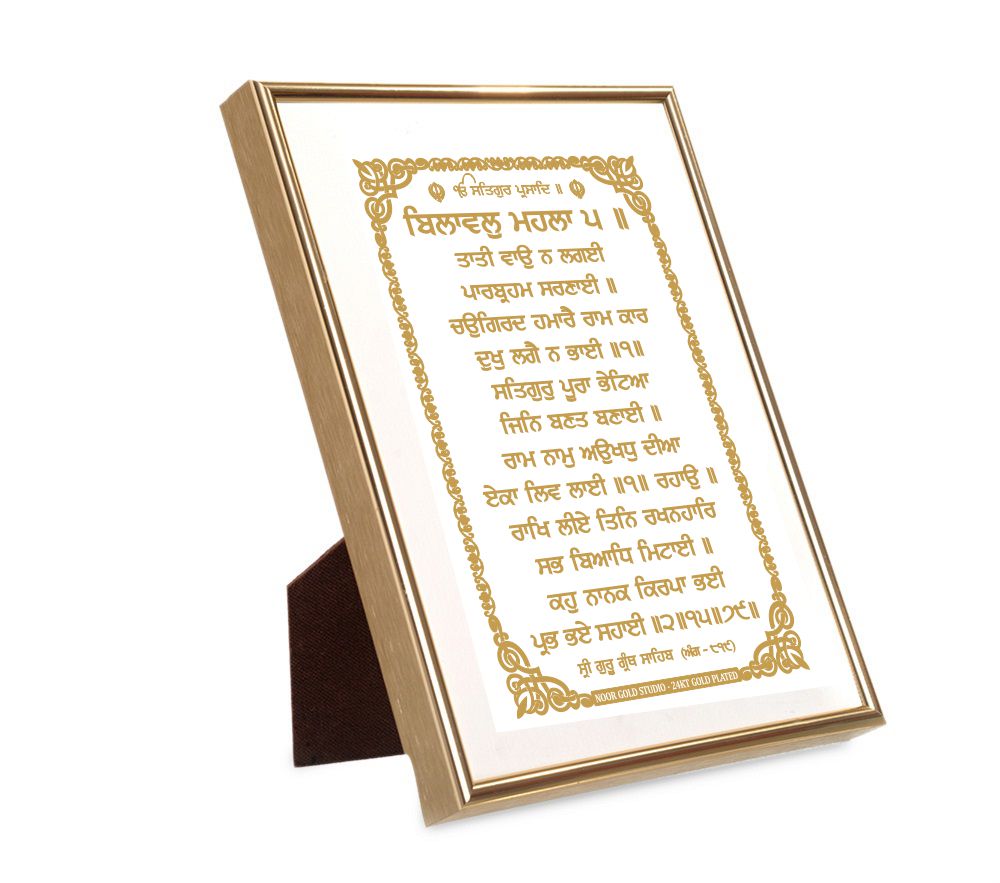 ੴ ਸਤਿਗੁਰ ਪ੍ਰਸਾਦਿ ॥
ਬਿਲਾਵਲੁ ਮਹਲਾ ੫ ॥
ਤਾਤੀ ਵਾਉ ਨ ਲਗਈ
ਪਾਰਬ੍ਰਹਮ ਸਰਣਾਈ ॥
ਚਉਗਿਰਦ ਹਮਾਰੈ ਰਾਮ ਕਾਰ
ਦੁਖੁ ਲਗੈ ਨ ਭਾਈ ॥੧॥
ਸਤਿਗੁਰੁ ਪੂਰਾ ਭੇਟਿਆ
ਜਿਨਿ ਬਣਤ ਬਣਾਈ ॥
ਰਾਮ ਨਾਮੁ ਅਉਖਧੁ ਦੀਆ
ਏਕਾ ਲਿਵ ਲਾਈ ॥੧॥ ਰਹਾਉ ॥
ਰਾਖਿ ਲੀਏ ਤਿਨਿ ਰਖਨਹਾਰਿ
ਸਭ ਬਿਆਧਿ ਮਿਟਾਈ ॥
ਕਹੁ ਨਾਨਕ ਕਿਰਪਾ ਭਈ
ਪ੍ਰਭ ਭਏ ਸਹਾਈ ॥੨॥੧੫॥੭੯॥
ਸ੍ਰੀ ਗੁਰੂ ਗ੍ਰੰਥ ਸਾਹਿਬ (ਅੰਗ - ੮੧੯)
NOOR GOLD STUDIO - 24KT GOLD PLATED